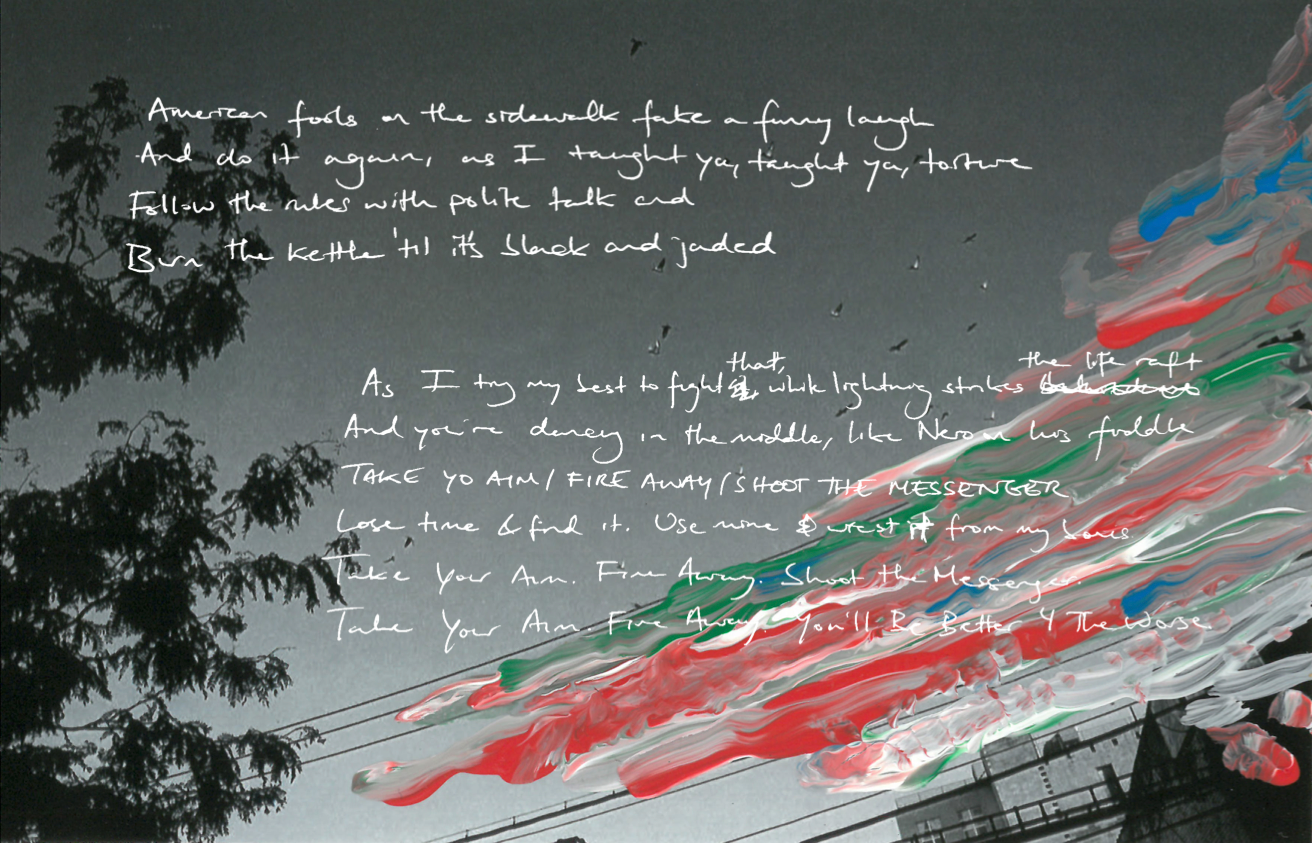 American fools on the sidewalk fake a funny laugh
And do it again, as I taught ya, taught ya, torture
Follow the rules with polite talk and
Burn the kettle 'til it's black and jaded
that, the life raft
As I try my best to fight while lightning strikes
And you're dancing in the middle, like Nero on his fiddle
TAKE YO AIM / FIRE AWAY / SHOOT THE MESSENGER
Lose time & find it. Use mine & wrest it from my bones.
Take Your Aim. Fire Away. Shoot the Messenger.
Take Your Aim. Fire Away. You'll Be Better 4 The Worse.